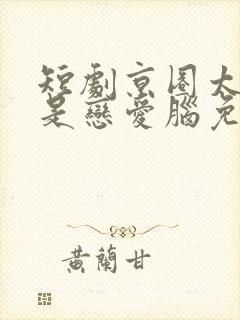 短劇京圈太
是戀愛腦免
黃蘭甘